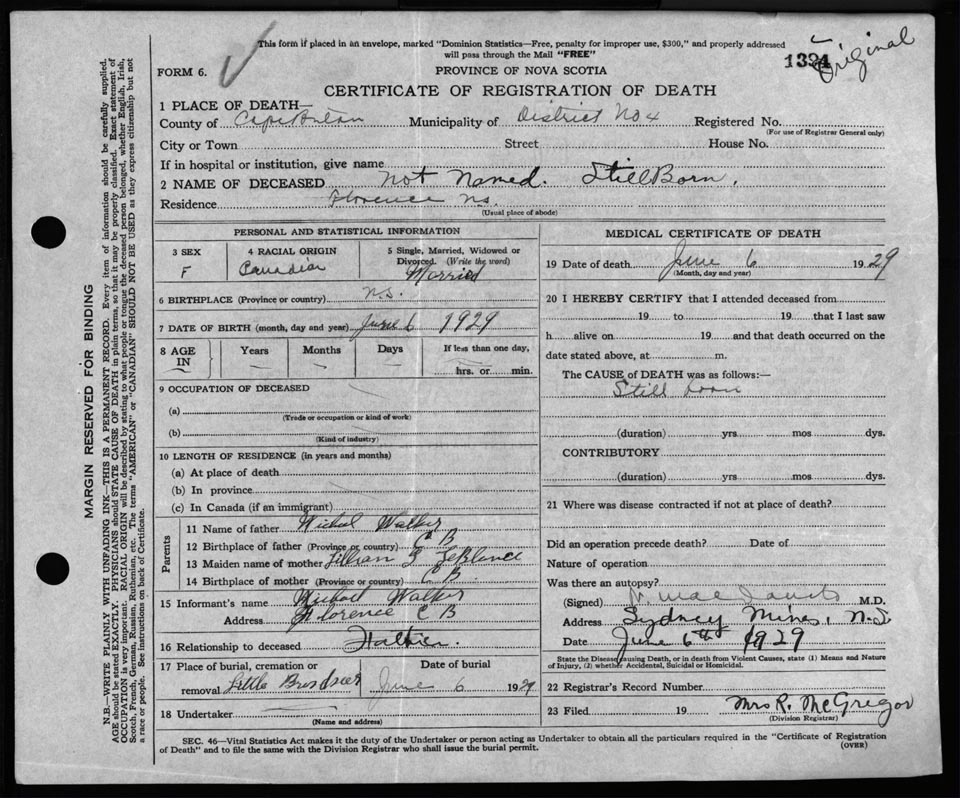 This form if placed in an envelope, marked "Dominion Statistics—Free, penalty for improper use, $300," and properly addressed
will pass through the Mail "FREE"
Original
FORM 6.
PROVINCE OF NOVA SCOTIA
CERTIFICATE OF REGISTRATION OF DEATH
1 PLACE OF DEATH—
County of Cape Breton Municipality of District No 4 Registered No.
(For use of Registrar General only)
City or Town Street House No.
If in hospital or institution, give name
2 NAME OF DECEASED Not Named. Still Born.
Residence Florence N.S.
(Usual place of abode)
PERSONAL AND STATISTICAL INFORMATION
3 SEX 4 RACIAL ORIGIN 5 Single, Married, Widowed or
Divorced. (Write the word)
F Canadian Married
6 BIRTHPLACE (Province or country) N.S.
7 DATE OF BIRTH (month, day and year) June 6 1929
8 AGE IN Years Months Days If less than one day,
hrs. or min.
9 OCCUPATION OF DECEASED
(a)
(Trade or occupation or kind of work)
(b)
(Kind of industry)
10 LENGTH OF RESIDENCE (in years and months)
(a) At place of death
(b) In province
(c) In Canada (if an immigrant)
Parents
11 Name of father Walker
12 Birthplace of father (Province or country) C B
13 Maiden name of mother Lillian LeBlanc
14 Birthplace of mother (Province or country) C B.
15 Informant's name Michael Walker
Address Florence C B
16 Relationship to deceased Father.
17 Place of burial, cremation or Date of burial
removal Little June 6 1929
18 Undertaker
(Name and address)
MEDICAL CERTIFICATE OF DEATH
19 Date of death June 6 1929
(Month, day and year)
20 I HEREBY CERTIFY that I attended deceased from
19 to 19 that I last saw
h alive on 19 and that death occurred on the
date stated above, at m.
The CAUSE of DEATH was as follows:—
Still born
(duration) yrs mos dys.
CONTRIBUTORY
(duration) yrs. mos dys.
21 Where was disease contracted if not at place of death?
Did an operation precede death? Date of
Nature of operation
Was there an autopsy?
(Signed) M.D.
Address Sydney Mines, N.S.
Date June 6th 1929
State the Disease causing Death, or in death from Violent Causes, state (1) Means and Nature
of Injury, (2) whether Accidental, Suicidal or Homicidal.
22 Registrar's Record Number
23 Filed 19 Mrs R. McGregor
(Division Registrar)
SEC. 46—Vital Statistics Act makes it the duty of the Undertaker or person acting as Undertaker to obtain all the particulars required in the "Certificate of Registration
of Death" and to file the same with the Division Registrar who shall issue the burial permit.
(OVER)
MARGIN RESERVED FOR BINDING
N.B.—WRITE PLAINLY WITH UNFADING INK—THIS IS A PERMANENT RECORD. Every item of information should be carefully supplied.
AGE should be stated EXACTLY. PHYSICIANS should STATE CAUSE OF DEATH in plain terms, so that it may be properly classified. Exact statement of
OCCUPATION is very important. RACIAL ORIGIN will be described by stating to what people or tongue the deceased person belonged, whether English, Irish,
Scotch, French, German, Russian, Ruthenian, etc. The terms "AMERICAN" or "CANADIAN" SHOULD NOT BE USED as they express citizenship but not
a race or people. See instructions on back of Certificate.